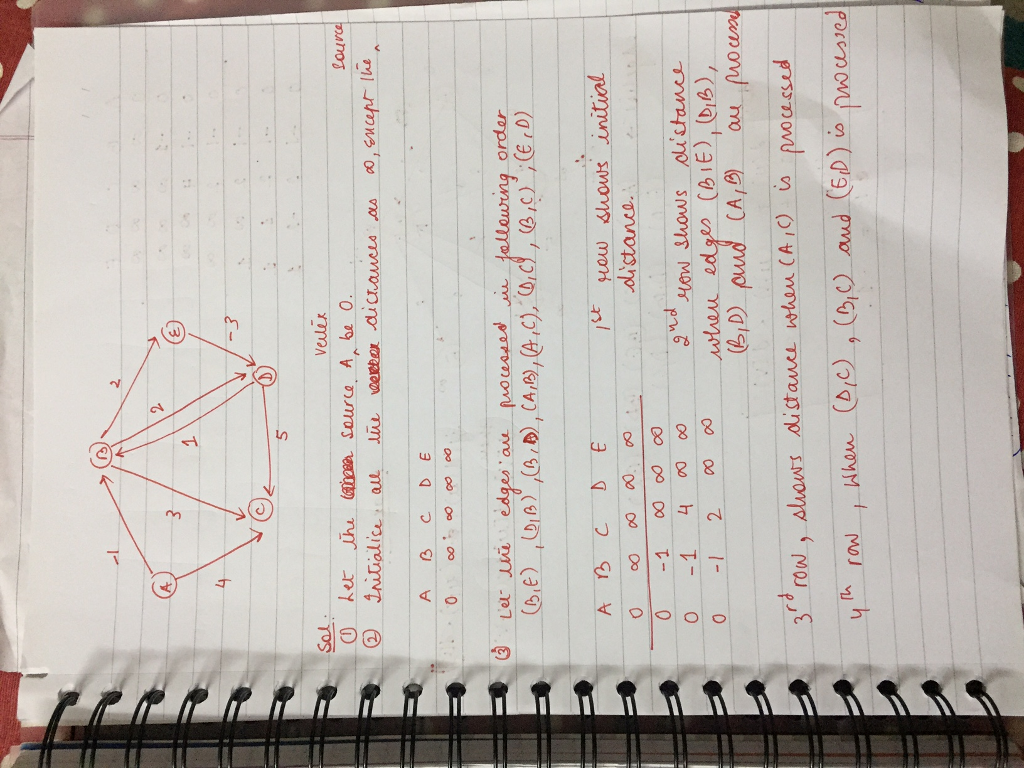 -1
2
A
B
E
4
3
1
2
-3
C
D
5
Sol:
① Let the source vertex A be 0.
② Initialize, all the distances as ∞, except the source
A B C D E
0 ∞ ∞ ∞ ∞
③ Let the edges are processed in following order
(B,E), (D,B), (B,D), (A,B), (A,C), (D,C), (B,C), (E,D)
A B C D E
0 ∞ ∞ ∞ ∞
0 -1 ∞ ∞ ∞
0 -1 4 ∞ ∞
0 -1 2 ∞ ∞
1st row shows initial
distance.
2nd row shows distance
when edges (B,E), (D,B),
(B,D) and (A,B) are processed
3rd row, shows distance when (A,C) is processed
4th row, when (D,C), (B,C) and (E,D) is processed